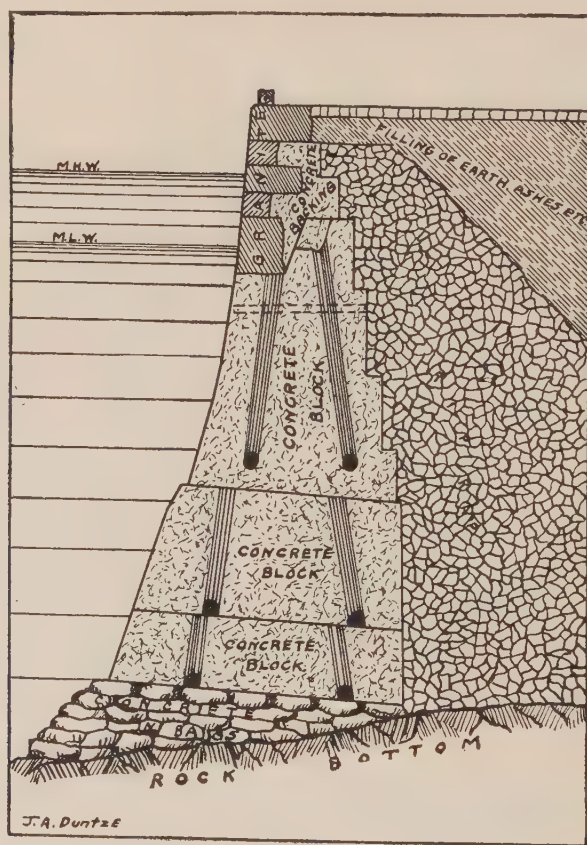 GRANITE
FILLING OF EARTH, ASHES, ETC
M.H.W.
CONCRETE
BACKING
M.L.W.
CONCRETE
BLOCK
CONCRETE
BLOCK
CONCRETE
BLOCK
CONCRETE
IN BAGS
ROCK BOTTOM
J.A. Duntze